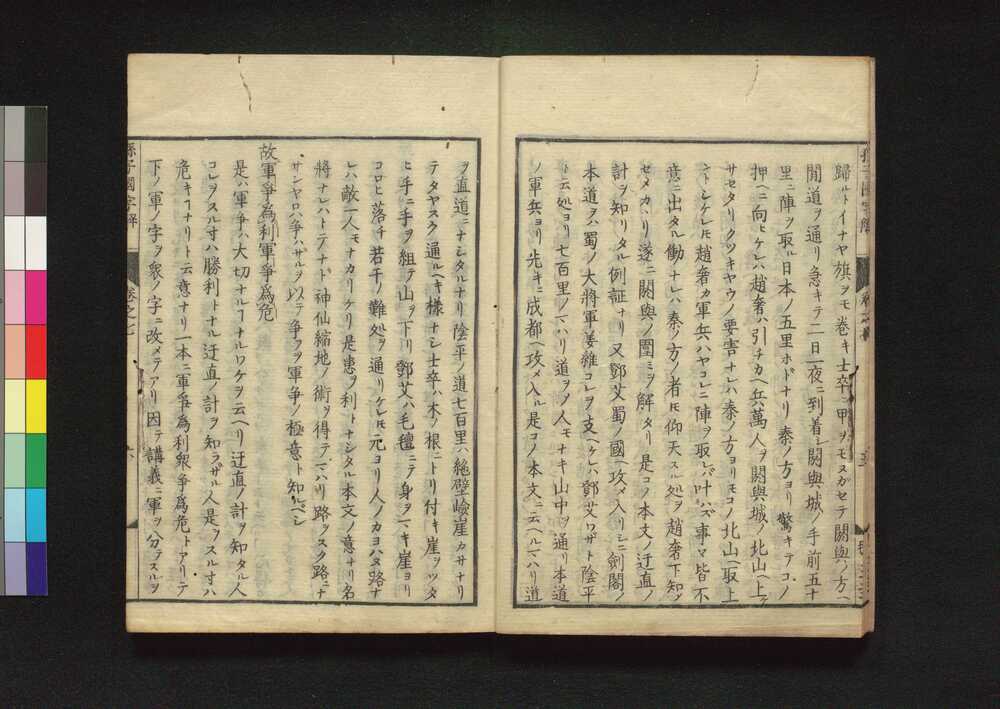 歸ルトイナヤ旗ヲモ卷キ士卒ニ甲ヲモヌガセテ閼與ノ方ヘ
間道ヲ通リ急キテ二日一夜ニ到着シ閼與城ノ手前五十
里ニ陣ヲ取ル日本ノ五里ホドナリ秦ノ方ヨリ驚キテコヽノ
押ヘニ向ヒケレハ趙奢ハ引チカヘ兵萬人ヲ閼與城ノ北山ヘ上ケ
サセタリクツキヤウノ要害ナレハ秦ノ方ヨリモコノ北山ヘ取上
ントシケレ𪜈趙奢カ軍兵ハヤコレニ陣ヲ取レバ叶ハズ事マ皆不
意ニ出タル働ナレハ秦ノ方ノ者𪜈仰天スル処ヲ趙奢下知ヲ
セメカヽリ遂ニ閼與ノ圍ミヲ解タリ是コノ本文ノ迂直ノ
計ヲ知リタル例証ナリ又鄧艾蜀ノ國ヘ攻メ入リシニ劍閣ノ
本道ヲハ蜀ノ大將軍姜維コレヲ支ヘケレハ鄧艾ワザト陰平
ト云処ヨリ七百里ノマハリ道ヲメ人モナキ山中ヲ通リ本道
ノ軍兵ヨリ先キニ成都ヘ攻メ入ル是コノ本文ニ云ヘルマハリ道
ヲ直道ニナシタルナリ陰平ノ道七百里ハ絶壁嶮崖カサナリ
テタヤスク通ルヘキ様ナシ士卒ハ木ノ根ニトリ付キ崖ヲツタ
ヒ手ニ手ヲ組テ山ヲ下リ鄧艾ハ毛氊ニテ身ヲツヽキ崖ヨリ
コロヒ落チ若干ノ難処ヲ通リケレ𪜈元ヨリ人ノカヨハヌ路ナ
レハ敵一人モナカリケリ是患ヲ利トナシタル本文ノ意ナリ名
將ナレハトテナド神仙縮地ノ術ヲ得テマハリ路ヲスク路ニナ
サンヤロハ爭ハサルヲ以テ爭フヲ軍爭ノ極意ト知ルベシ
故軍爭爲利軍爭爲危
是ハ軍爭ハ大切ナルヿナルワケヲ云ヘリ迂直ノ計ヲ知タル人
コレヲスル寸ハ勝利トナル迂直ノ計ヲ知ラザル人是ヲスル寸ハ
危キヿナリト云意ナリ一本ニ軍爭爲利衆爭爲危トアリテ
下ノ軍ノ字ヲ衆ノ字ニ改メテアリ因テ講義ニ軍ヲ分テスルヲ
孫子國字解 卷之七 六